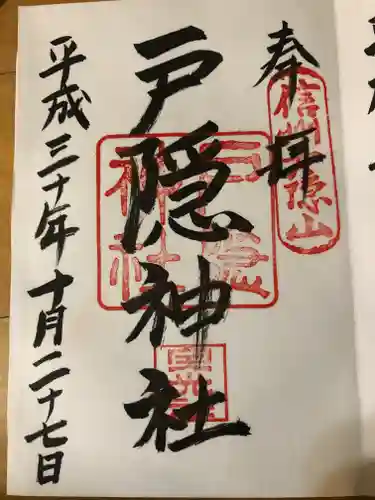 奉拝
信州戸隠山
戸隠神社
戸隠神社
宝光社
平成三十年十月二十七日